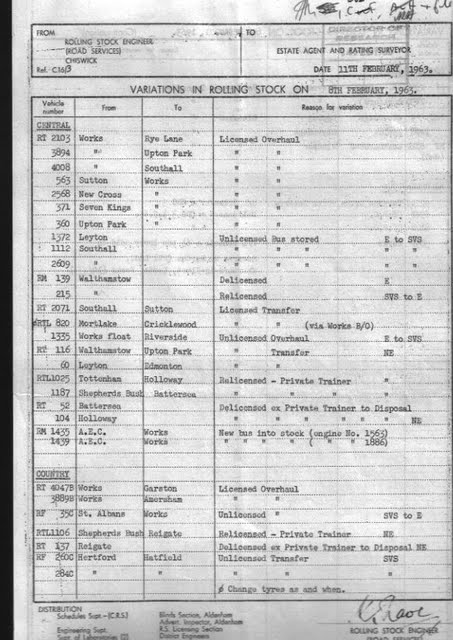 DIRECTOR OF
RESEARCH
FROM TO
ROLLING STOCK ENGINEER
(ROAD SERVICES)
CHISWICK
ESTATE AGENT AND RATING SURVEYOR
Ref.- C16/3
DATE 11TH FEBRUARY, 1963.
VARIATIONS IN ROLLING STOCK ON 8TH FEBRUARY, 1963.
Vehicle number From To Reason for variation
CENTRAL
RT 2103 Works Rye Lane Licensed Overhaul
3894 " Upton Park " "
4008 " Southall " "
563 Sutton Works " "
2568 New Cross " " "
371 Seven Kings " " "
360 Upton Park " " "
1372 Leyton Unlicensed Bus stored E to SVS
1112 Southall " " " " " "
2609 " " " " " " "
RM 139 Walthamstow Delicensed E
215 " Relicensed SVS to E
RT 2071 Southall Sutton Licensed Transfer
RTL 820 Mortlake Cricklewood " " (via Works B/O)
1335 Works float Riverside Unlicensed Overhaul E to SVS
RT 116 Walthamstow Upton Park " Transfer NE
60 Leyton Edmonton " " "
RTL1025 Tottenham Holloway Relicensed - Private Trainer "
1187 Shepherds Bush Battersea " " " "
RT 52 Battersea Delicensed ex Private Trainer to Disposal
104 Holloway " " " " " " NE
RM 1435 A.E.C. Works New bus into stock (engine No. 1563)
1439 A.E.C. Works " " " " ( " " 1886)
COUNTRY
RT 4047B Works Garston Licensed Overhaul
3889B Works Amersham " "
RF 35C St. Albans Works Unlicensed " SVS to E
RTL1106 Shepherds Bush Reigate Relicensed - Private Trainer NE
RT 137 Reigate Delicensed ex Private Trainer to Disposal NE
RF 260C Hertford Hatfield Unlicensed Transfer SVS
284C " " " " "
ø Change tyres as and when.
DISTRIBUTION
Schedules Supt.-(C.R.S.) Blinds Section, Aldenham
Advert. Inspector, Aldenham
Engineering Supt. R.S. Licensing Section
Supt. of Laboratories (2) District Engineers
ROLLING STOCK ENGINEER
(ROAD SERVICES)